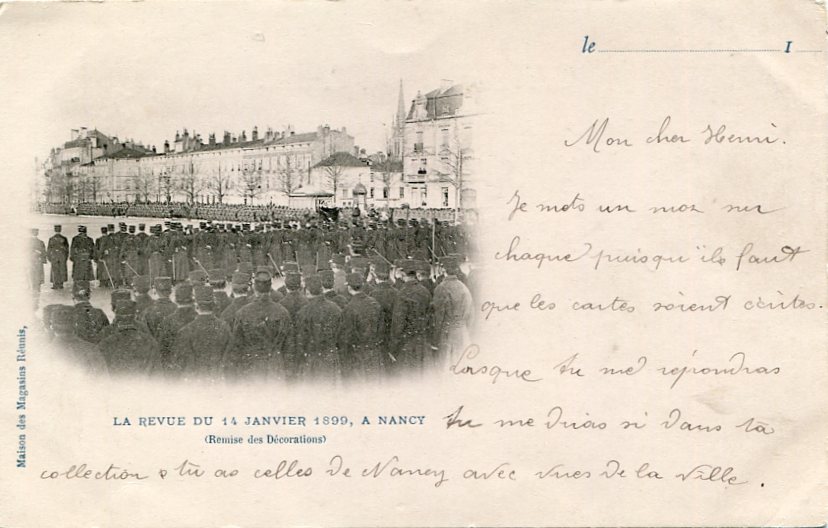 le 1
Mon cher Henri.
Je mets un mot sur
chaque puisqu'ils faut
que les cartes soient écrites.
Lorsque tu me répondras
tu me diras si dans ta
collection tu as celles de Nancy avec vues de la ville.
LA REVUE DU 14 JANVIER 1899, A NANCY
(Remise des Décorations)
Maison des Magasins Réunis,